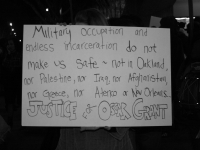 Military occupation and
endless incarceration do not
make us safe - not in Oakland,
nor Palestine, nor Iraq, nor Afghanistan,
nor Greece, nor Atenco or New Orleans.
JUSTICE for OSCAR GRANT